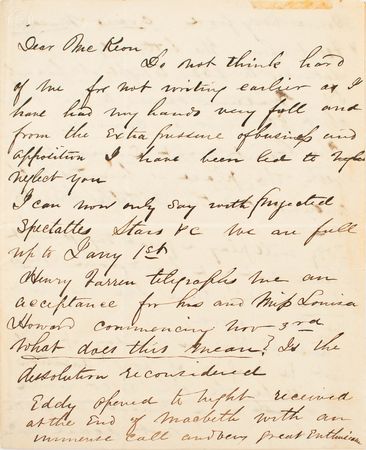 Dear Mc Keon
Do not think hard
of me for not writing earlier as I
have had my hands very full and
from the extra pressure of business and
opposition I have been led to neglect
neglect you
I can now only say with projected
Spectales Stars &c We are full
up to Jany 1st
Henry Farren telegraphs me an
acceptance for his and Miss Louisa
Howard commencing Nov 3rd
What does this mean? Is the
dissolution reconsidered
Eddy opened to night received
at the End of Macbeth with an
immense call and very great Enthusiasm